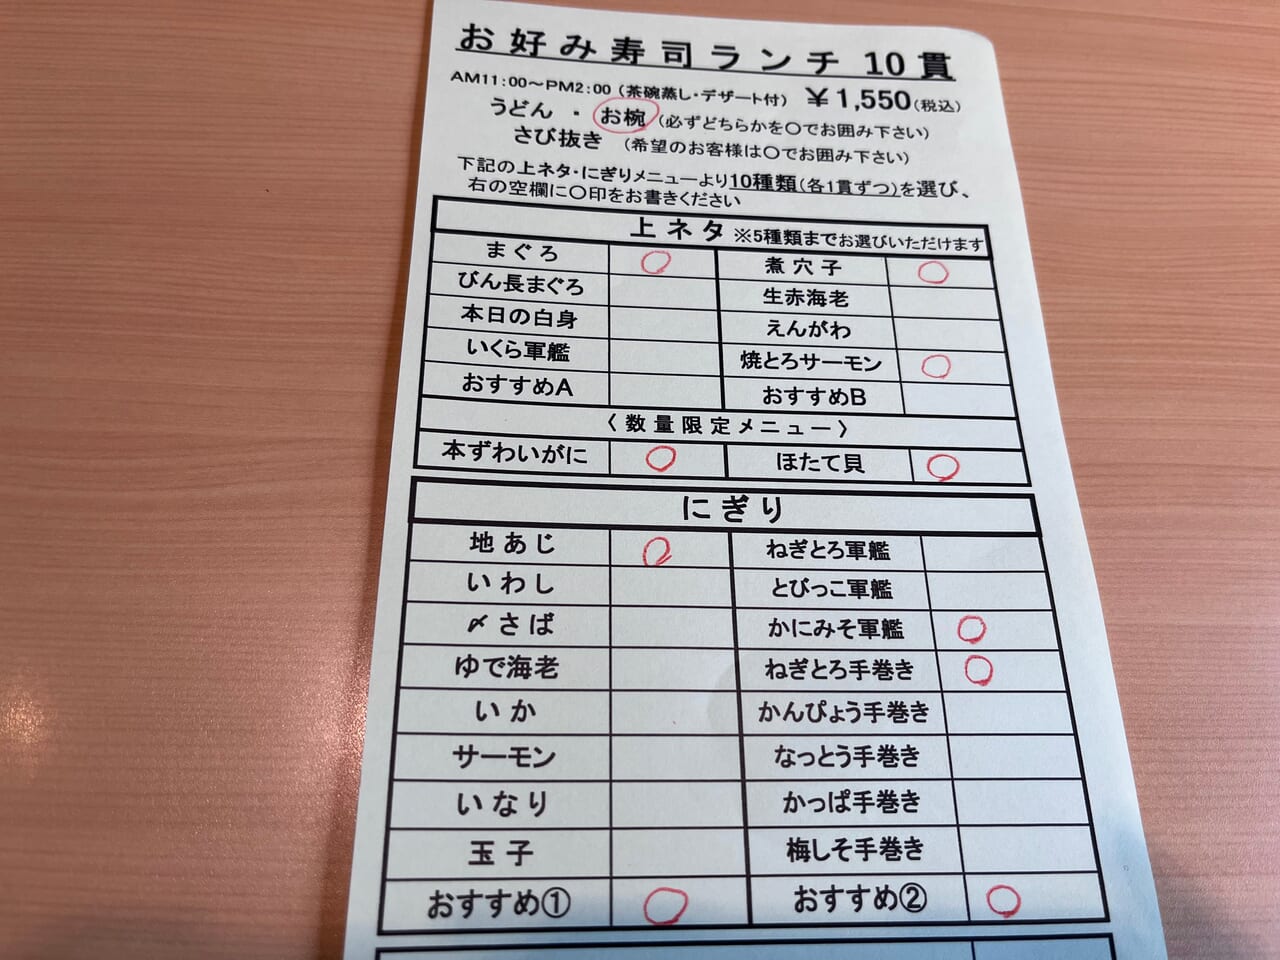 お好み寿司ランチ 10貫
AM11:00～PM2:00（茶碗蒸し・デザート付） ￥1,550（税込）
うどん ・ お椀（必ずどちらかを〇でお囲み下さい）
さび抜き （希望のお客様は〇でお囲み下さい）
下記の上ネタ・にぎりメニューより10種類（各1貫ずつ）を選び、
右の空欄に〇印をお書きください
上ネタ ※5種類までお選びいただけます
まぐろ 〇 煮穴子 〇
びん長まぐろ 生赤海老
本日の白身 えんがわ
いくら軍艦 焼とろサーモン 〇
おすすめA おすすめB
〈数量限定メニュー〉
本ずわいがに 〇 ほたて貝 〇
にぎり
地あじ 〇 ねぎとろ軍艦
いわし とびっこ軍艦
〆さば かにみそ軍艦 〇
ゆで海老 ねぎとろ手巻き 〇
いか かんぴょう手巻き
サーモン なっとう手巻き
いなり かっぱ手巻き
玉子 梅しそ手巻き
おすすめ① 〇 おすすめ② 〇